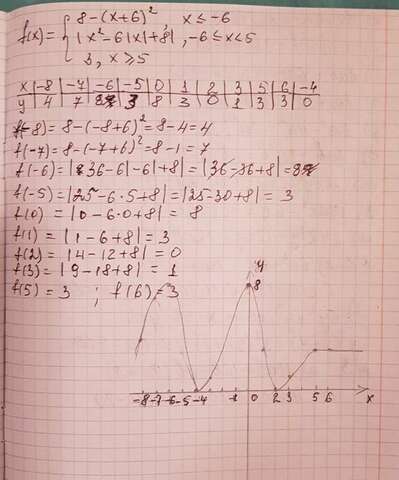 f(x) = { 8-(x+6)², x ≤ -6
|x²-6|x|+8|, -6 ≤ x < 5
3, x ≥ 5
x | -8 | -7 | -6 | -5 | 0 | 1 | 2 | 3 | 5 | 6 | -4
y | 4 | 7 | 8 | 3 | 8 | 3 | 0 | 1 | 3 | 3 | 0
f(-8) = 8-(-8+6)² = 8-4 = 4
f(-7) = 8-(-7+6)² = 8-1 = 7
f(-6) = |36-6|-6|+8| = |36-36+8| = 8
f(-5) = |25-6·5+8| = |25-30+8| = 3
f(0) = |0-6·0+8| = 8
f(1) = |1-6+8| = 3
f(2) = |4-12+8| = 0
f(3) = |9-18+8| = 1
f(5) = 3 ; f(6) = 3
y
8
-8 -7 -6 -5 -4 1 0 2 3 5 6 x